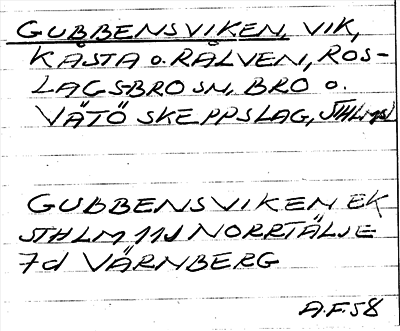 GUBBENSVIKEN, VIK,
KÅSTA o. RÅLVEN, ROS-
LAGS-BRO SN, BRO o.
VÄTÖ SKEPPSLAG, STHLMS L
GUBBENSVIKEN EK
STHLM 11J NORRTÄLJE
7d VÄRNBERG
A.F. 58